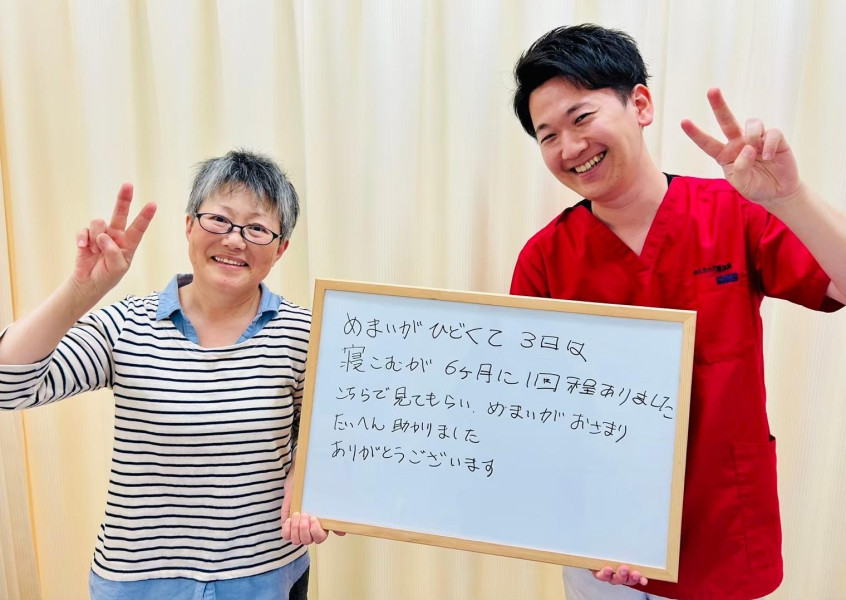 めまいがひどくて 3日は
寝こむが 6ヶ月に1回程ありました
こちらで見てもらい、めまいがおさまり
たいへん助かりました
ありがとうございます